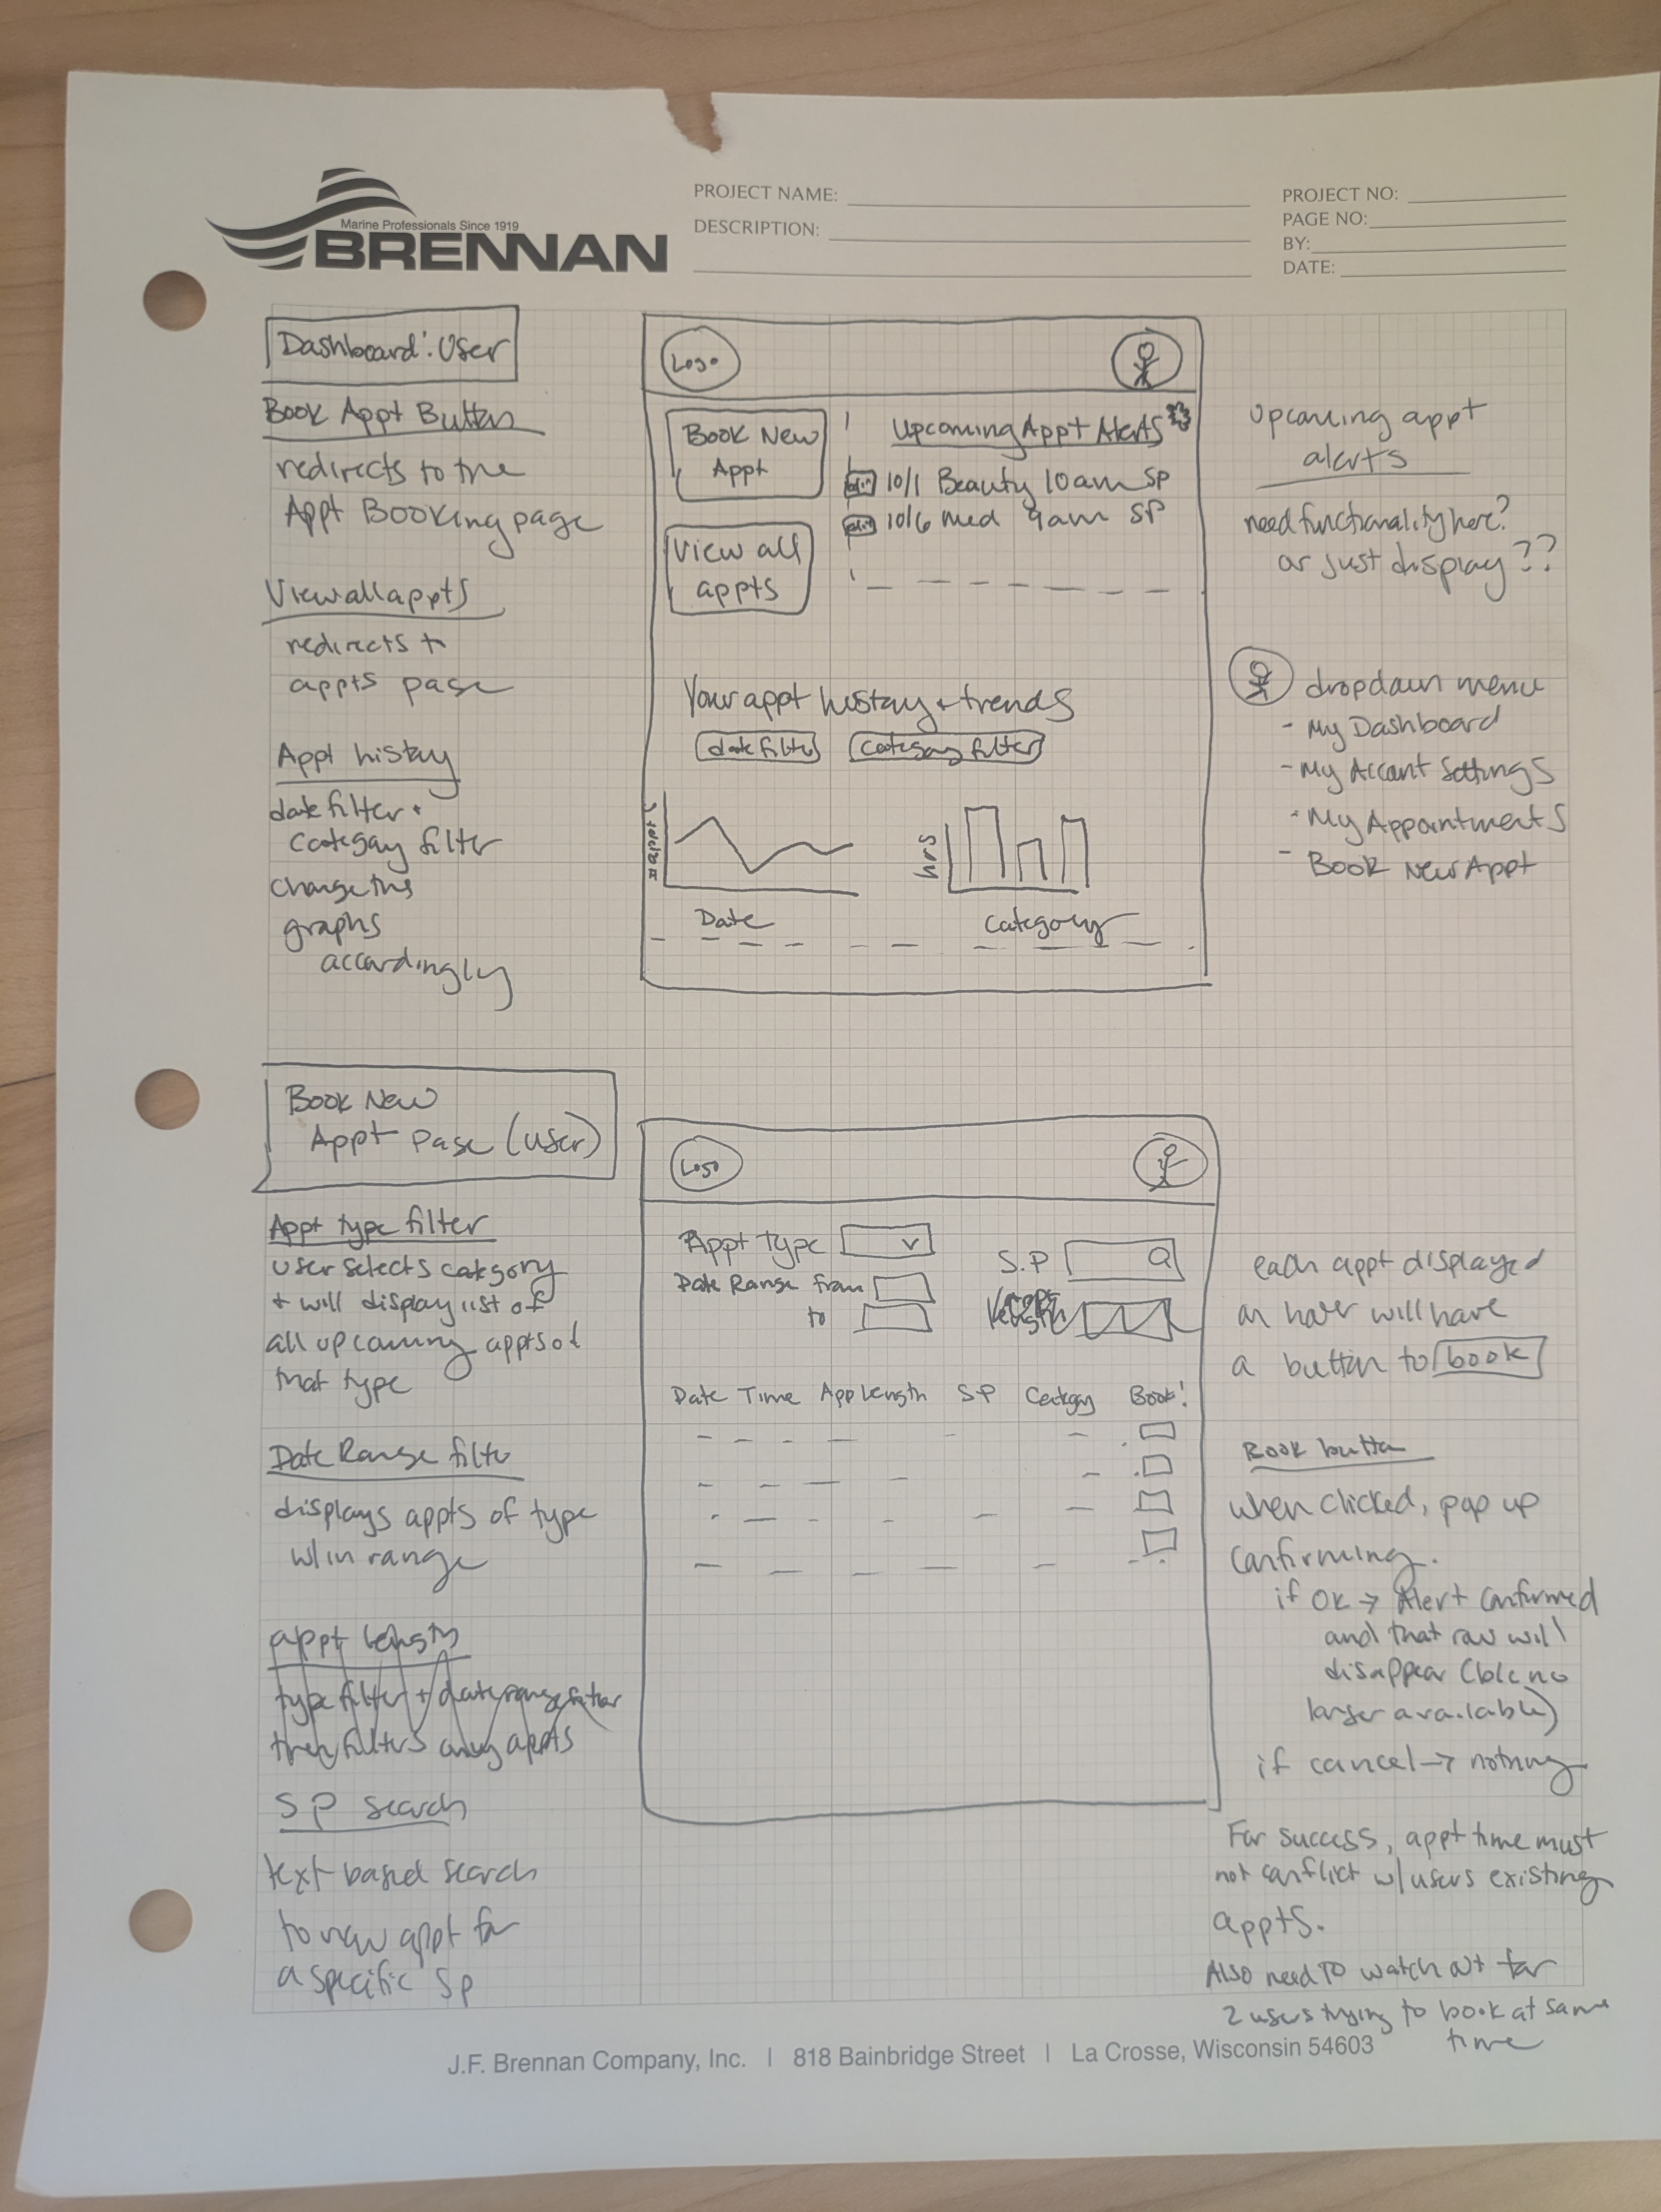 Marine Professionals Since 1919
BRENNAN
PROJECT NAME:
DESCRIPTION:
PROJECT NO:
PAGE NO:
BY:
DATE:
Dashboard: User
Book Appt Button
redirects to the
Appt Booking page
View all appts
redirects to
appts page
Appt history
date filter +
category filter
change the
graphs
accordingly
Logo
Book New
Appt
View all
appts
Upcoming Appt Alerts
10/1 Beauty 10am SP
10/6 Med 9am SP
Your appt history + trends
date filter
category filter
# appts
Date
hrs
Category
Upcoming appt
alerts
need functionality here?
or just display??
dropdown menu
- My Dashboard
- My Account Settings
- My Appointments
- Book New Appt
Book New
Appt Page (user)
Appt type filter
user selects category
+ will display list of
all upcoming appts of
that type
Date Range filter
displays appts of type
w/in range
appt length
type filter + date range filter
then filters appts
SP search
text based search
to view appt for
a specific SP
Logo
Appt Type
Date Range from
to
S.P
length
Date Time App Length SP Category Book!
each appt displayed
on hover will have
a button to book
Book button
when clicked, pop up
confirming.
if OK → Alert confirmed
and that row will
disappear (b/c no
longer available)
if cancel → nothing
For success, appt time must
not conflict w/ users existing
appts.
Also need to watch out for
2 users trying to book at same
time
J.F. Brennan Company, Inc. | 818 Bainbridge Street | La Crosse, Wisconsin 54603